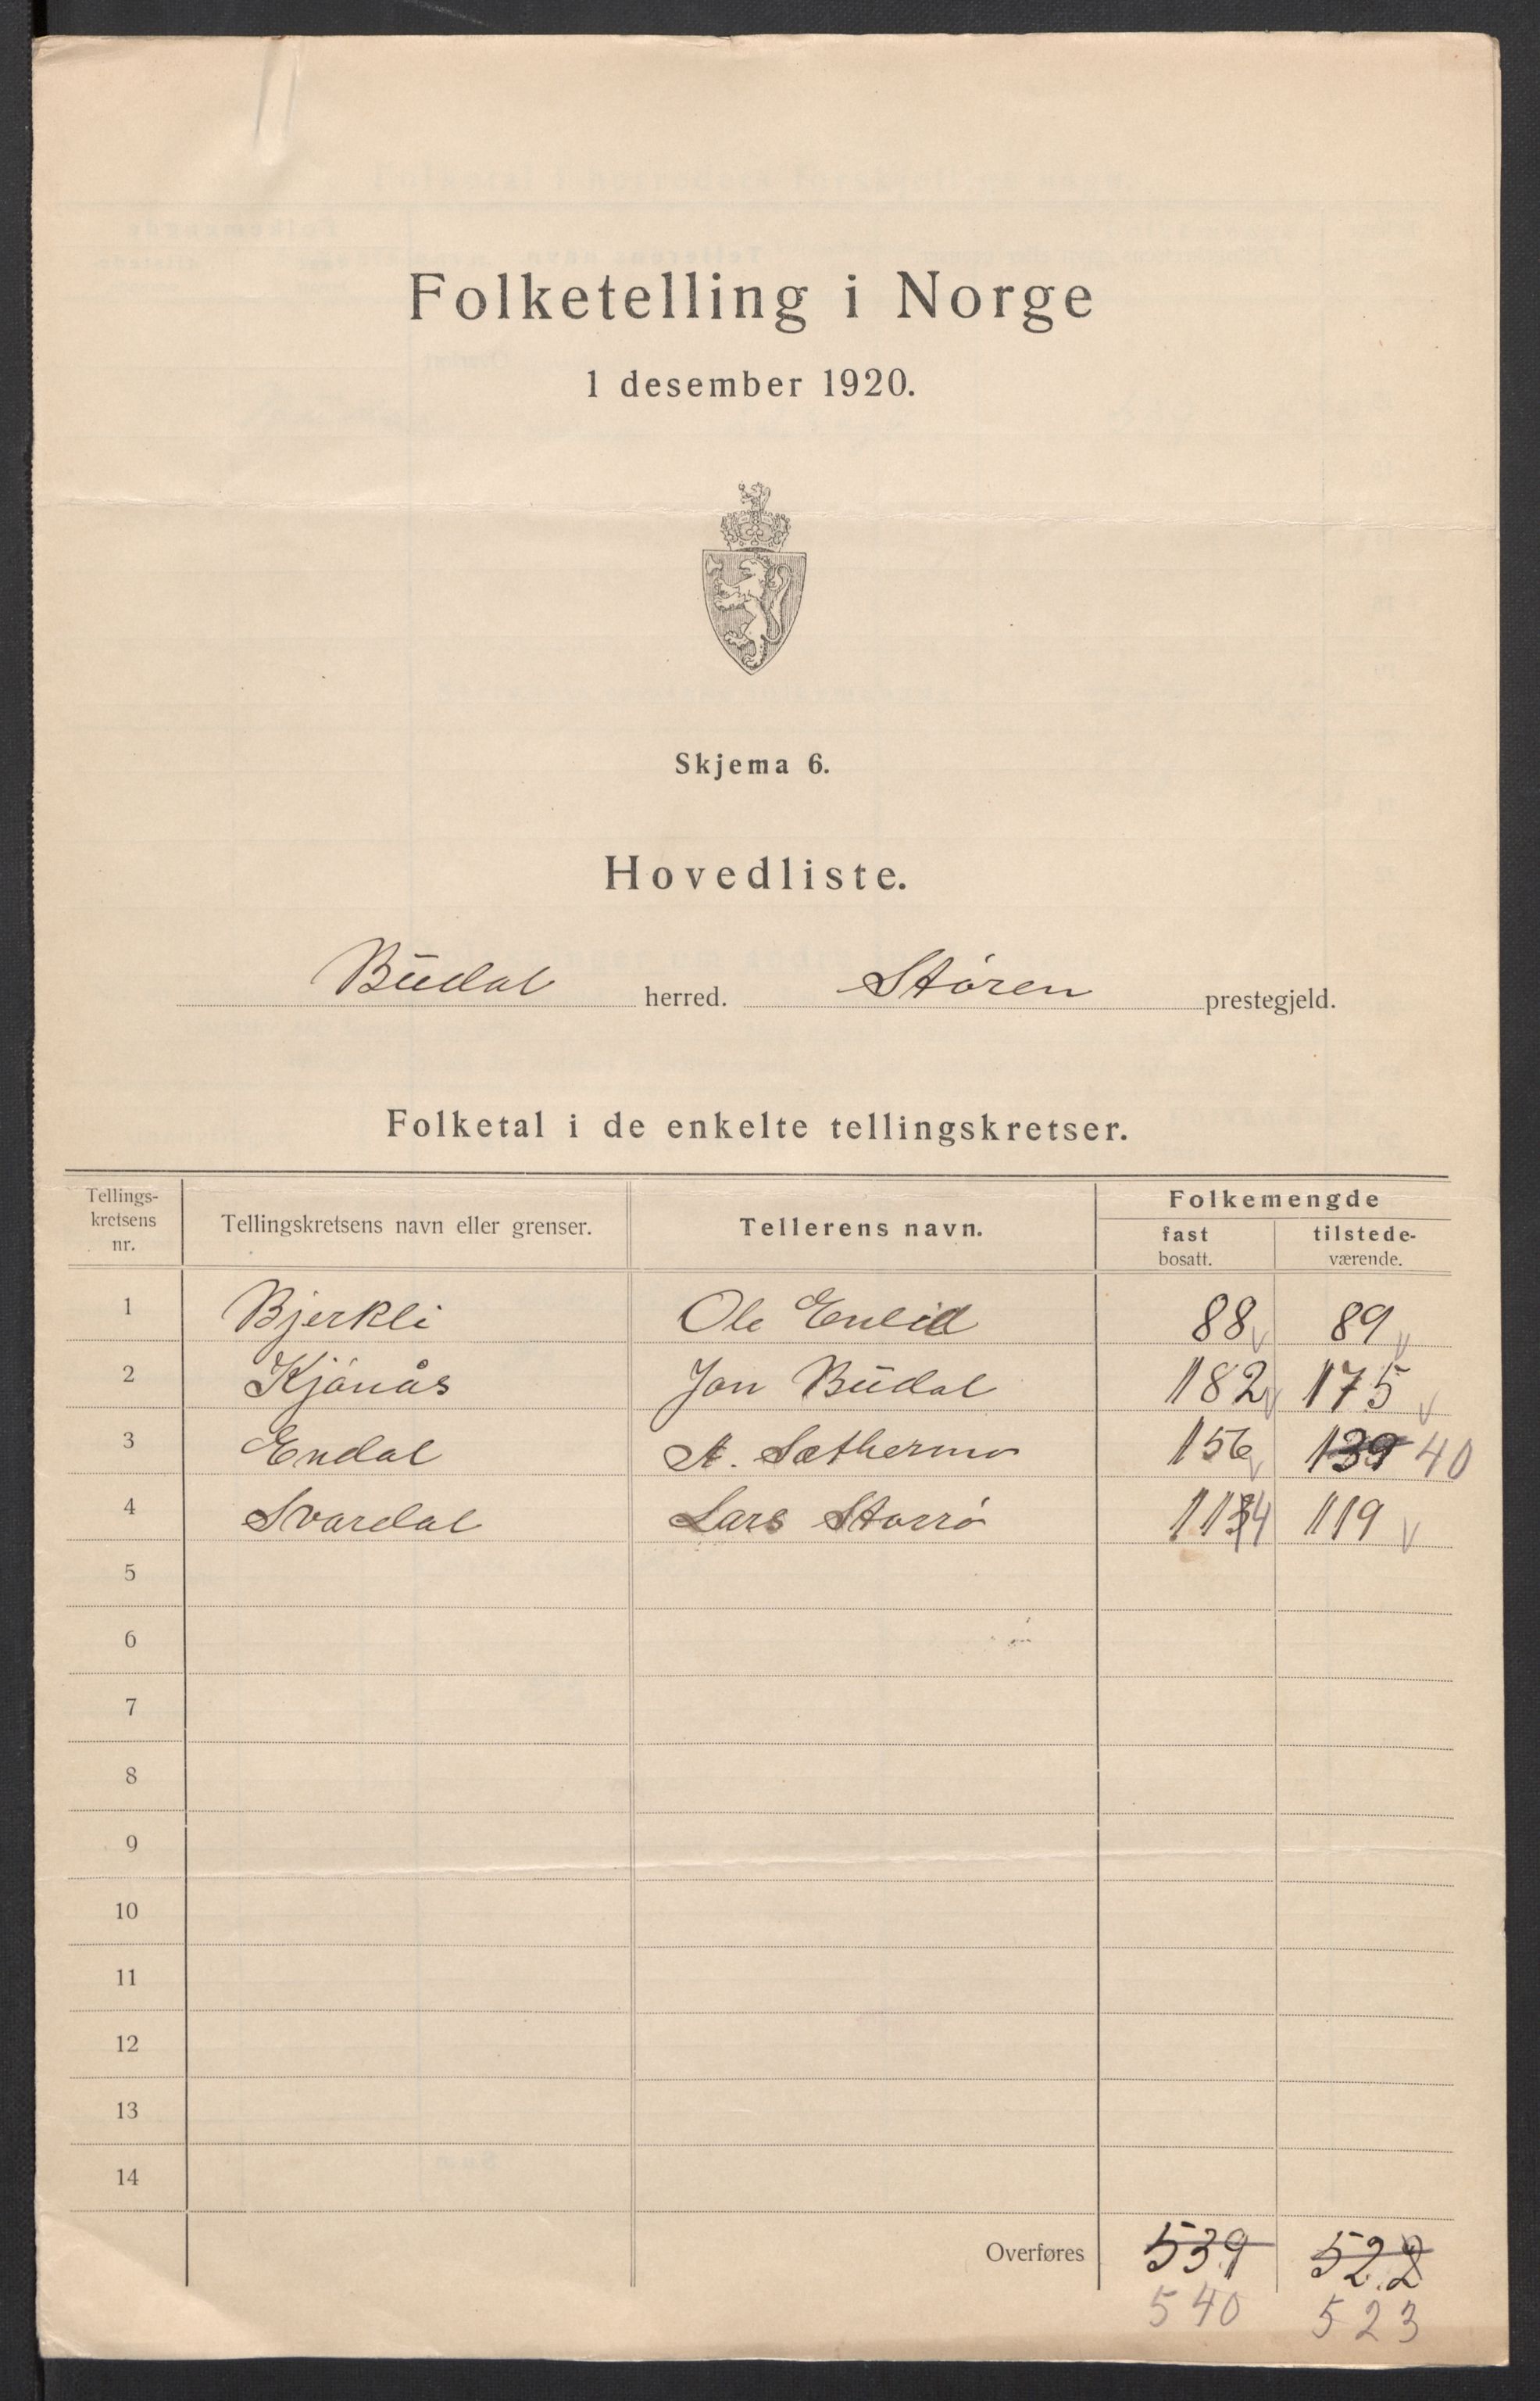 Folketelling i Norge
1 desember 1920.
Skjema 6.
Hovedliste.
Budal herred. Støren prestegjeld.
Folketal i de enkelte tellingskretser.
Tellings-
kretsens
nr.
Tellingskretsens navn eller grenser.
Tellerens navn.
Folkemengde
fast
bosatt.
tilstede-
værende.
1 Bjerkli Ole Enlid 88 89
2 Kjønås Jon Budal 182 175
3 Endal A. Sæthermo 156 139 40
4 Svardal Lars Storrø 113 4 119
5
6
7
8
9
10
11
12
13
14
Overføres 539 522
540 523